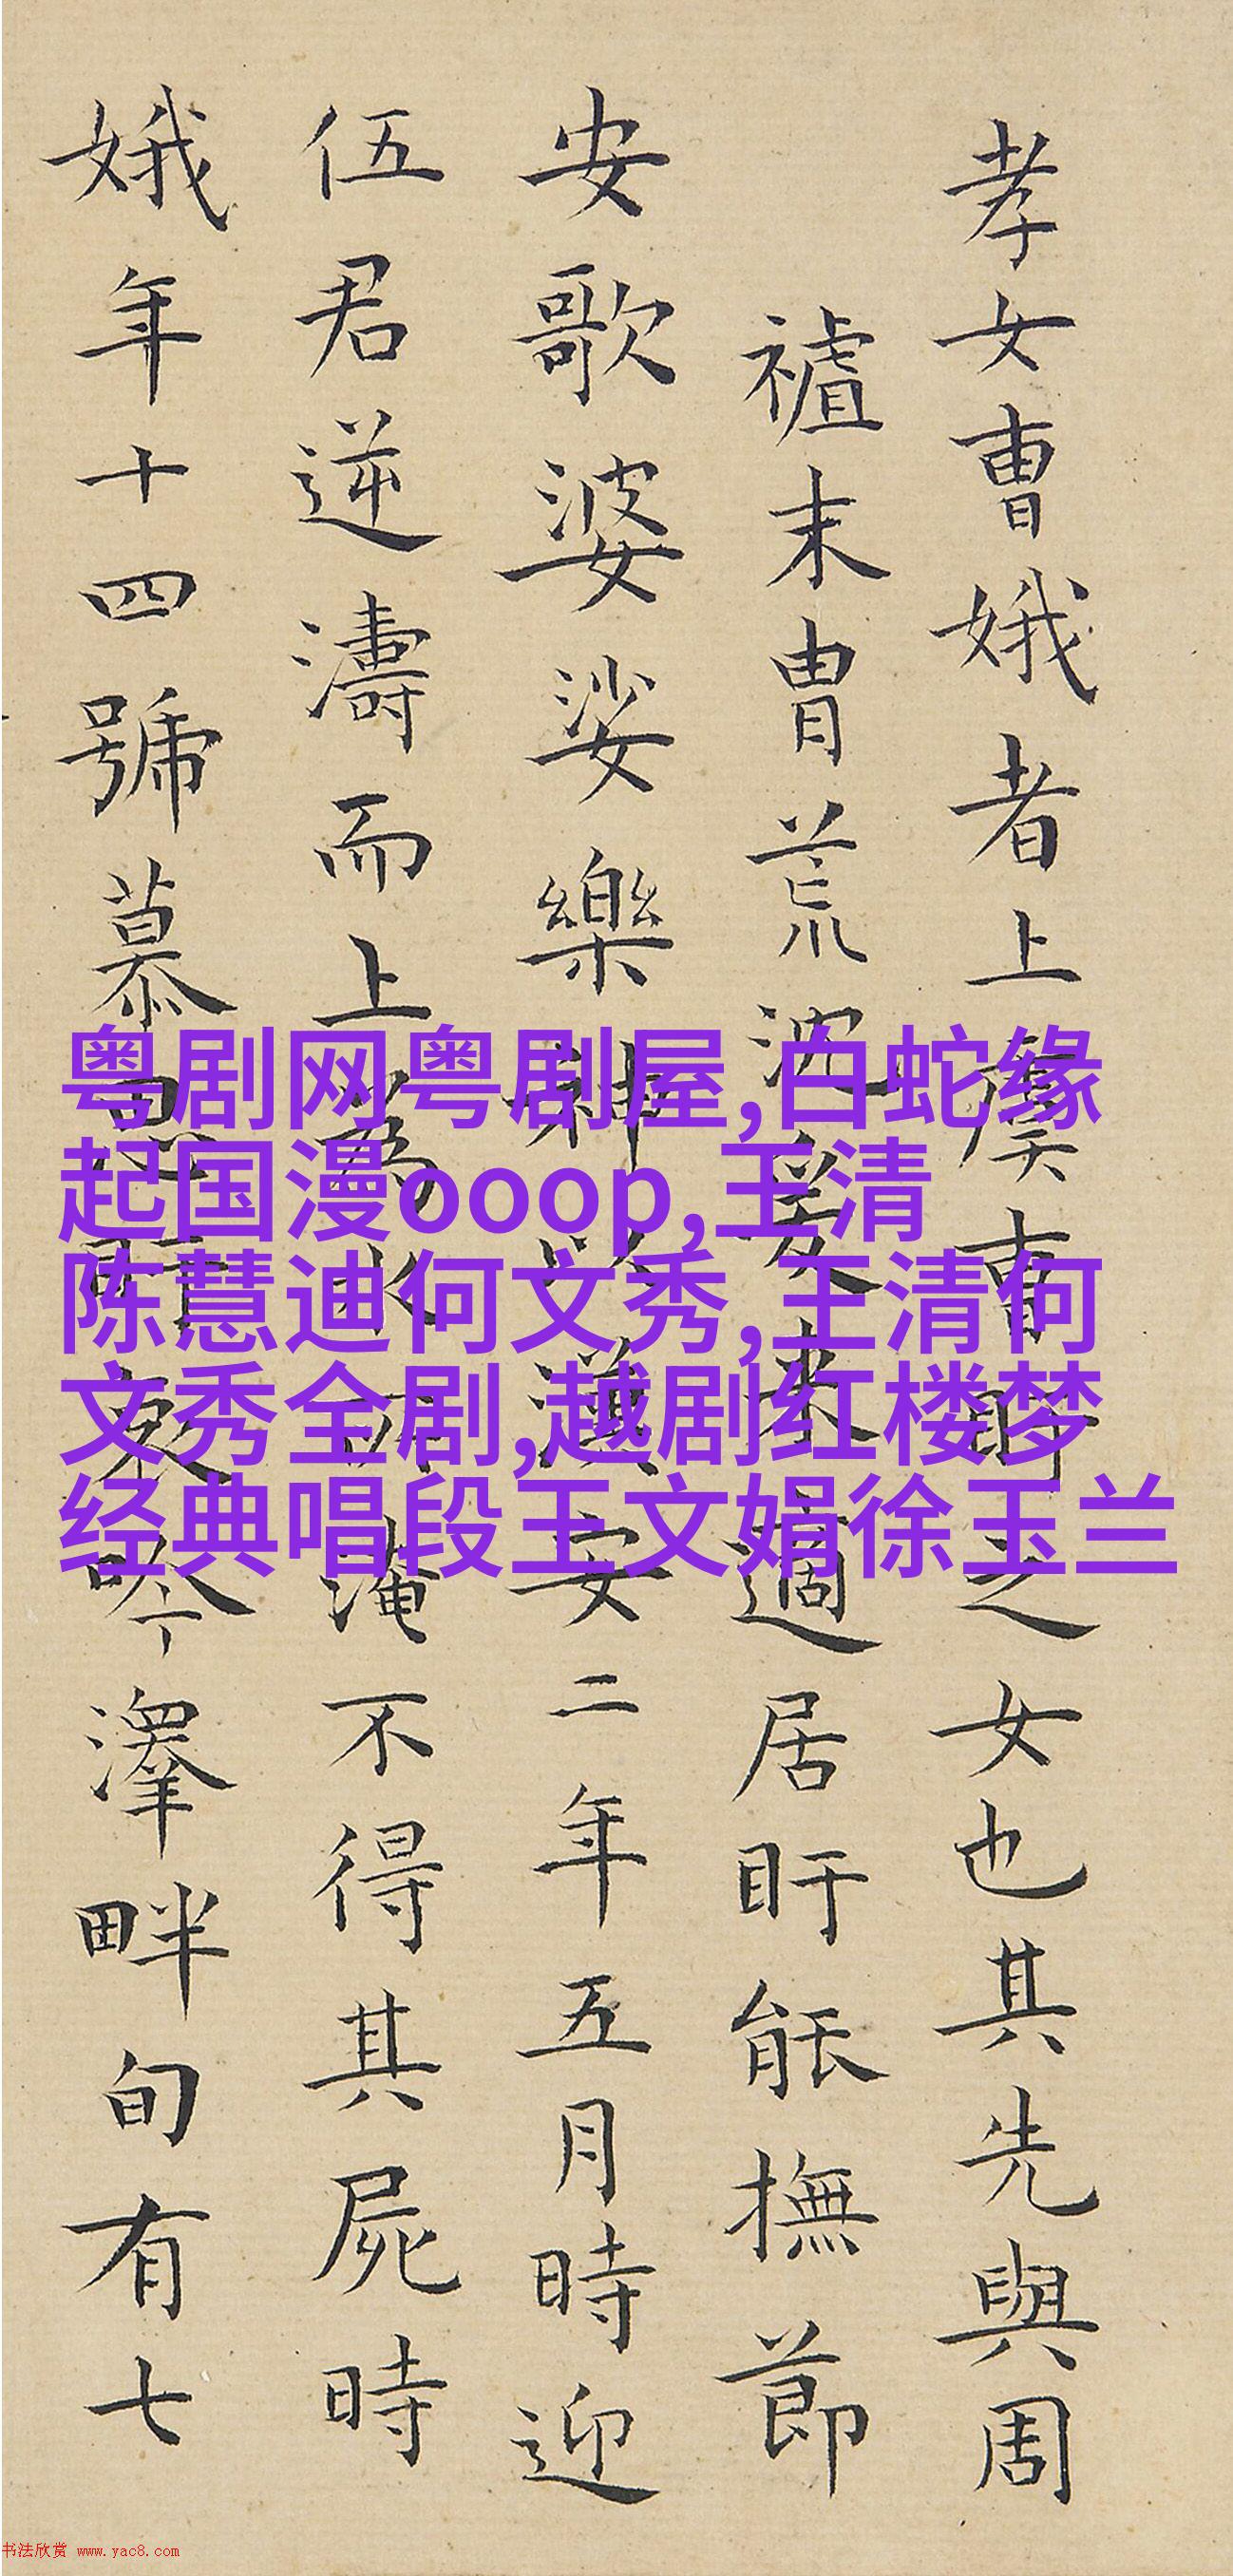 孝女曹娥者上虞曹盱之女也其先與周
末胄荒沉爰來適居盱能撫節
安歌婆娑樂神以漢安二年五月時迎
伍君逆濤而上為水所淹不得其屍時
娥年十四號慕思盱哀吟澤畔旬有七
粤剧网粤剧屋,白蛇缘
起国漫ooop,王清
陈慧迪何文秀,王清何
文秀全剧,越剧红楼梦
经典唱段王文娟徐玉兰
书法欣赏 www.yac8.com